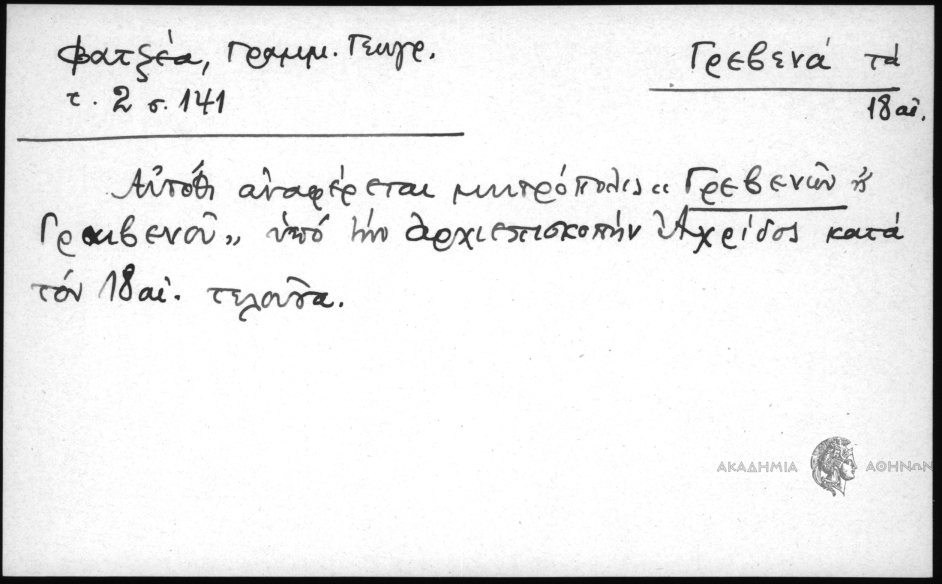 Φατζέα, Γραμμ. Γεωγρ.
τ. 2 σ. 141
Γρεβενά τά
18 αἰ.
Αὐτόθι ἀναφέρεται μητρόπολις "Γρεβενῶν ἤ
Γραιβενοῦ" ὑπό τήν ἀρχιεπισκοπήν Ἀχρίδος κατά
τόν 18 αἰ. τελοῦσα.
ΑΚΑΔΗΜΙΑ ΑΘΗΝΩΝ